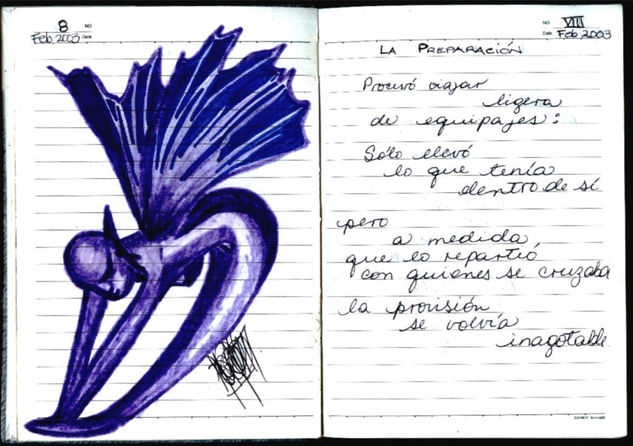 8 No
Feb, 2003 Date
No VIII
Date Feb, 2003
LA PREPARACIÓN
Procuró viajar
ligera
de equipajes:
Sólo llevó
lo que tenía
dentro de sí
pero
a medida
que lo repartió
con quienes se cruzaba
la provisión
se volvía
inagotable